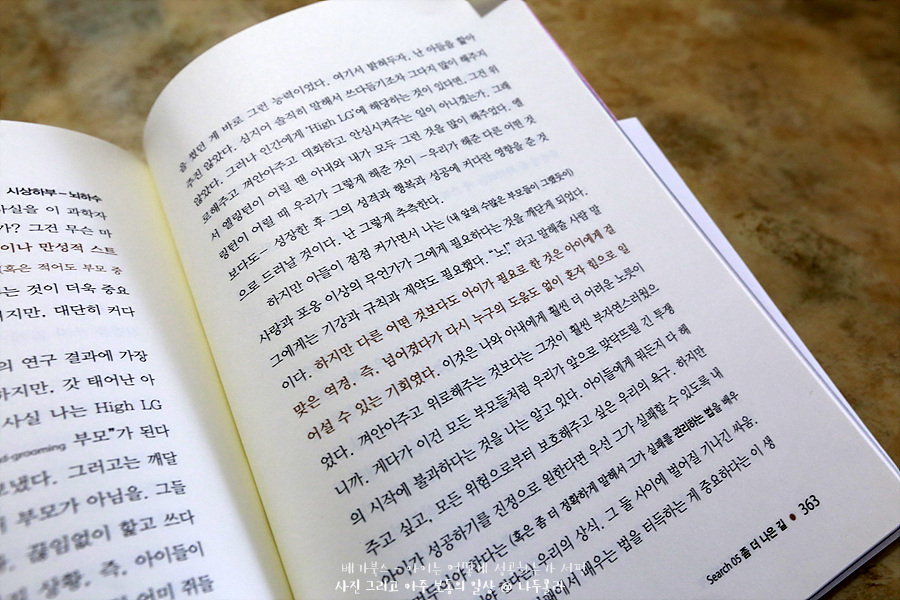 시상하부–뇌하수
사실을 이 과학자
가? 그건 무슨 마
이나 만성적 스트
(혹은 적어도 부모 중
는 것이 더욱 중요
지만. 대단히 커다
의 연구 결과에 가장
하지만. 갓 태어난 아
사실 나는 High LG
d-grooming 부모"가 된다
보냈다. 그러고는 깨달
부모가 아님을. 그들
끊임없이 핥고 쓰다
상황. 즉, 아이들이
어미 쥐들
을 썼던 게 바로 그런 능력이었다. 여기서 밝혀두자, 난 아들을 핥아
주진 않았다. 심지어 솔직히 말해서 쓰다듬기조차 그다지 많이 해주지
않았다. 그러나 인간에게 'High LG'에 해당하는 것이 있다면, 그건 위
로해주고 껴안아주고 대화하고 안심시켜주는 일이 아니겠는가. 그래
서 엘링턴이 어릴 땐 아내와 내가 모두 그런 것을 많이 해주었다. 엘
링턴이 어릴 때 우리가 그렇게 해준 것이 –우리가 해준 다른 어떤 것
보다도– 성장한 후 그의 성격과 행복과 성공에 커다란 영향을 준 것
으로 드러날 것이다. 난 그렇게 추측한다.
하지만 아들이 점점 커가면서 나는 (내 앞의 수많은 부모들이 그랬듯이)
사랑과 포옹 이상의 무언가가 그에게 필요하다는 것을 깨닫게 되었다.
그에게는 기강과 규칙과 제약도 필요했다. "노!" 라고 말해줄 사람 말
이다. 하지만 다른 어떤 것보다도 아이가 필요로 한 것은 아이에게 걸
맞은 역경, 즉, 넘어졌다가 다시 누구의 도움도 없이 혼자 힘으로 일
어설 수 있는 기회였다. 이것은 나와 아내에게 훨씬 더 어려운 노릇이
었다. 껴안아주고 위로해주는 것보다는 그것이 훨씬 부자연스러웠으
니까. 게다가 이건 모든 부모들처럼 우리가 앞으로 맞닥뜨릴 긴 투쟁
의 시작에 불과하다는 것을 나는 알고 있다. 아이들에게 뭐든지 다 해
주고 싶고, 모든 위험으로부터 보호해주고 싶은 우리의 욕구. 하지만
아이가 성공하기를 진정으로 원한다면 우선 그가 실패할 수 있도록 내
버려두어야 한다는 (혹은 좀 더 정확하게 말해서 그가 실패를 관리하는 법을 배우
는 우리의 상식. 그 둘 사이에 벌어질 기나긴 싸움.
실패해서 배우는 법을 터득하는 게 중요하다는 이 생
Search 05 좀 더 나은 길 ● 363
베가북스 - 아이는 어떻게 성공하는가 서평
사진 그리고 아주 보통의 일상 @ 나두롱라